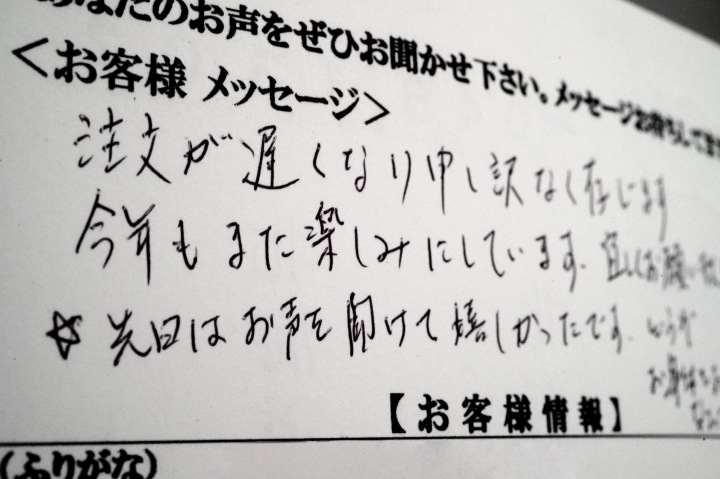 あなたのお声をぜひお聞かせ下さい。メッセージお待ちしてます
<お客様 メッセージ>
注文が遅くなり申し訳なく存じます
今年もまた楽しみにしています。宜しくお願い
☆ 先日はお声を聞けて嬉しかったです。どうぞ
お身体
【お客様情報】
(ふりがな)